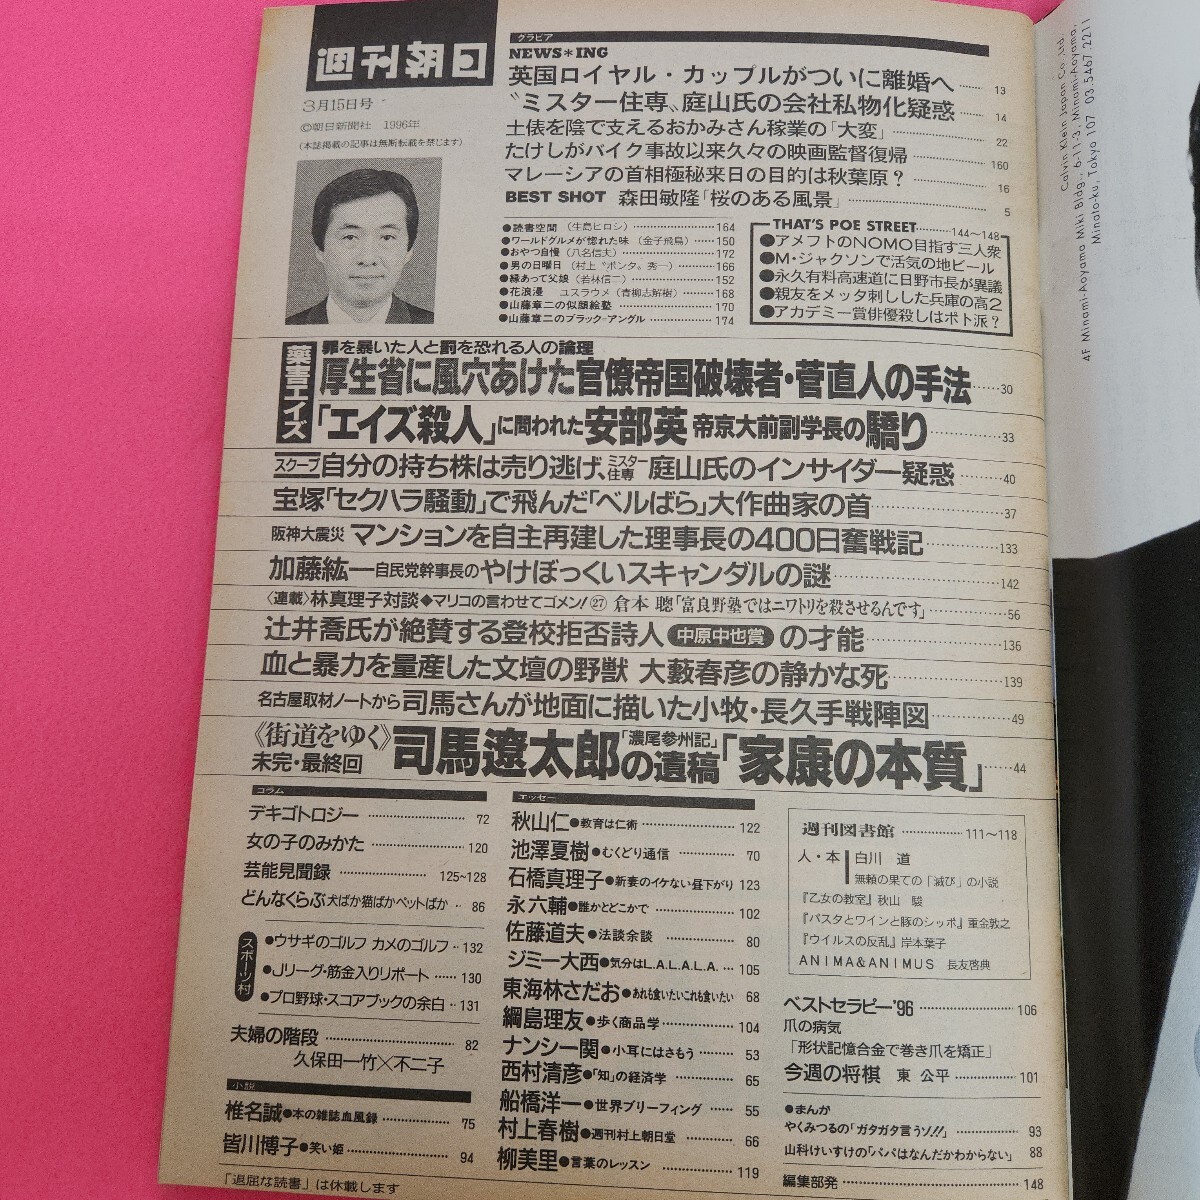 週刊朝日
3月15日号
©朝日新聞社 1996年
(本誌掲載の記事は無断転載を禁じます)
グラビア
NEWS*ING
英国ロイヤル・カップルがついに離婚へ……13
〝ミスター住専〟庭山氏の会社私物化疑惑……14
土俵を陰で支えるおかみさん稼業の「大変」……22
たけしがバイク事故以来久々の映画監督復帰……160
マレーシアの首相極秘来日の目的は秋葉原?……16
BEST SHOT 森田敏隆「桜のある風景」……5
●読書空間(生島ヒロシ)……164
●ワールドグルメが惚れた味(金子飛鳥)……150
●おやつ自慢(八名信夫)……172
●男の日曜日(村上〝ポンタ〟秀一)……166
●縁あって父娘(若林信二)……152
●花浪漫 ユスラウメ(青柳志解樹)……168
●山藤章二の似顔絵塾……170
●山藤章二のブラック=アングル……174
THAT'S POE STREET……144〜148
●アメフトのNOMO目指す三人衆
●M・ジャクソンで活気の地ビール
●永久有料高速道に日野市長が異議
●親友をメッタ刺しした兵庫の高2
●アカデミー賞俳優殺しはポト派?
薬害エイズ
罪を暴いた人と罰を恐れる人の論理
厚生省に風穴あけた官僚帝国破壊者・菅直人の手法……30
「エイズ殺人」に問われた安部英 帝京大前副学長の驕り……33
スクープ 自分の持ち株は売り逃げ、ミスター住専 庭山氏のインサイダー疑惑……40
宝塚「セクハラ騒動」で飛んだ「ベルばら」大作曲家の首……37
阪神大震災 マンションを自主再建した理事長の400日奮戦記……133
加藤紘一自民党幹事長のやけぼっくいスキャンダルの謎……142
〈連載〉林真理子対談◆マリコの言わせてゴメン!㉗ 倉本 聰「富良野塾ではニワトリを殺させるんです」……56
辻井喬氏が絶賛する登校拒否詩人 中原中也賞 の才能……136
血と暴力を量産した文壇の野獣 大藪春彦の静かな死……139
名古屋取材ノートから 司馬さんが地面に描いた小牧・長久手戦陣図……49
《街道をゆく》
未完・最終回
司馬遼太郎「濃尾参州記」の遺稿「家康の本質」……44
コラム
デキゴトロジー……72
女の子のみかた……120
芸能見聞録……125〜128
どんなくらぶ 犬ばか猫ばかペットばか……86
スポーツ村
●ウサギのゴルフ カメのゴルフ……132
●Jリーグ・筋金入りリポート……130
●プロ野球・スコアブックの余白……131
夫婦の階段……82
久保田一竹×不二子
小説
椎名誠●本の雑誌血風録……75
皆川博子●笑い姫……94
「退屈な読書」は休載します
エッセー
秋山仁●教育は仁術……122
池澤夏樹●むくどり通信……70
石橋真理子●新妻のイケない昼下がり 123
永六輔●誰かとどこかで……102
佐藤道夫●法談余談……80
ジミー大西●気分はL.A.L.A.L.A.……105
東海林さだお●あれも食いたいこれも食いたい 68
綱島理友●歩く商品学……104
ナンシー関●小耳にはさもう……53
西村清彦●「知」の経済学……65
船橋洋一●世界ブリーフィング……55
村上春樹●週刊村上朝日堂……66
柳美里●言葉のレッスン……119
週刊図書館……111〜118
人・本 白川 道
無頼の果ての「滅び」の小説
『乙女の教室』秋山 駿
『パスタとワインと豚のシッポ』重金敦之
『ウイルスの反乱』岸本葉子
ANIMA&ANIMUS 長友啓典
ベストセラピー'96……106
爪の病気
「形状記憶合金で巻き爪を矯正」
今週の将棋 東 公平……101
●まんが
やくみつるの「ガタガタ言うゾ!!」……93
山科けいすけの「パパはなんだかわからない」 88
編集部発……148
Calvin Klein Japan Co.,Ltd.
4F Minami-Aoyama Miki Bldg., 6-11-3, Minami-Aoyama,
Minato-ku, Tokyo 107 03.5467.2211